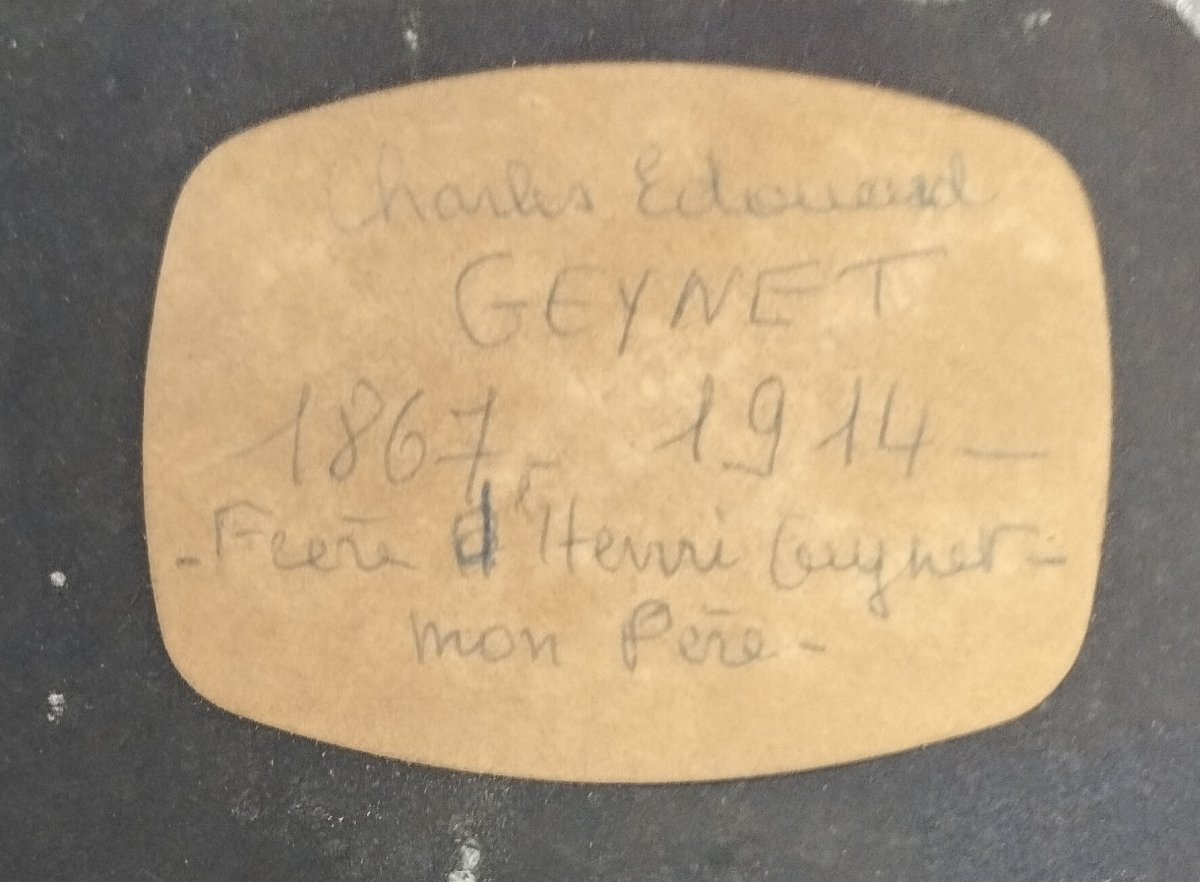 Charles Edouard
GEYNET
1867 - 1914 -
- Frère d'Henri Geynet -
mon Père -